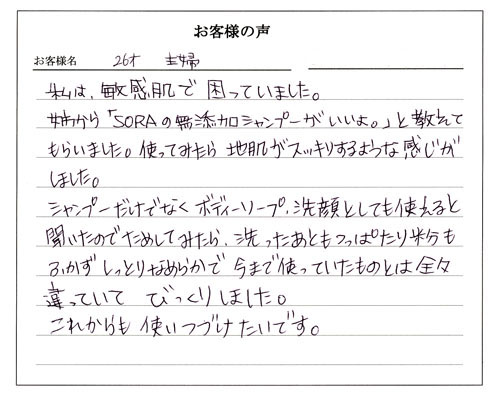 お客様の声
お客様名 26才 主婦
私は、敏感肌で困っていました。
姉から「SORAの無添加シャンプーがいいよ。」と教えて
もらいました。使ってみたら地肌がスッキリするような感じが
しました。
シャンプーだけでなくボディーソープ、洗顔としても使えると
聞いたのでためしてみたら、洗ったあともつっぱたり粉も
ふかずしっとりなめらかで今まで使っていたものとは全々
違っていてびっくりしました。
これからも使いつづけたいです。